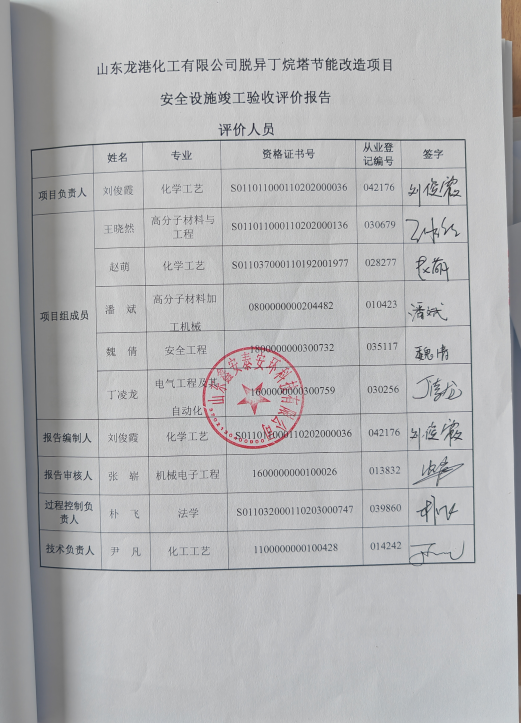 山东龙港化工有限公司脱异丁烷塔节能改造项目
安全设施竣工验收评价报告
评价人员
姓名 专业 资格证书号 从业登记编号 签字
项目负责人 刘俊霞 化学工艺 S011011000110202000036 042176 刘俊霞
项目组成员 王晓然 高分子材料与工程 S011011000110202000136 030679
赵萌 化学工艺 S011037000110192001977 028277 赵萌
潘 斌 高分子材料加工机械 0800000000204482 010423 潘斌
魏 倩 安全工程 1800000000300732 035117 魏倩
丁凌龙 电气工程及其自动化 1600000000300759 030256 丁凌龙
报告编制人 刘俊霞 化学工艺 S011011000110202000036 042176 刘俊霞
报告审核人 张 崭 机械电子工程 1600000000100026 013832
过程控制负责人 朴 飞 法学 S011032000110203000747 039860
技术负责人 尹 凡 化工工艺 1100000000100428 014242